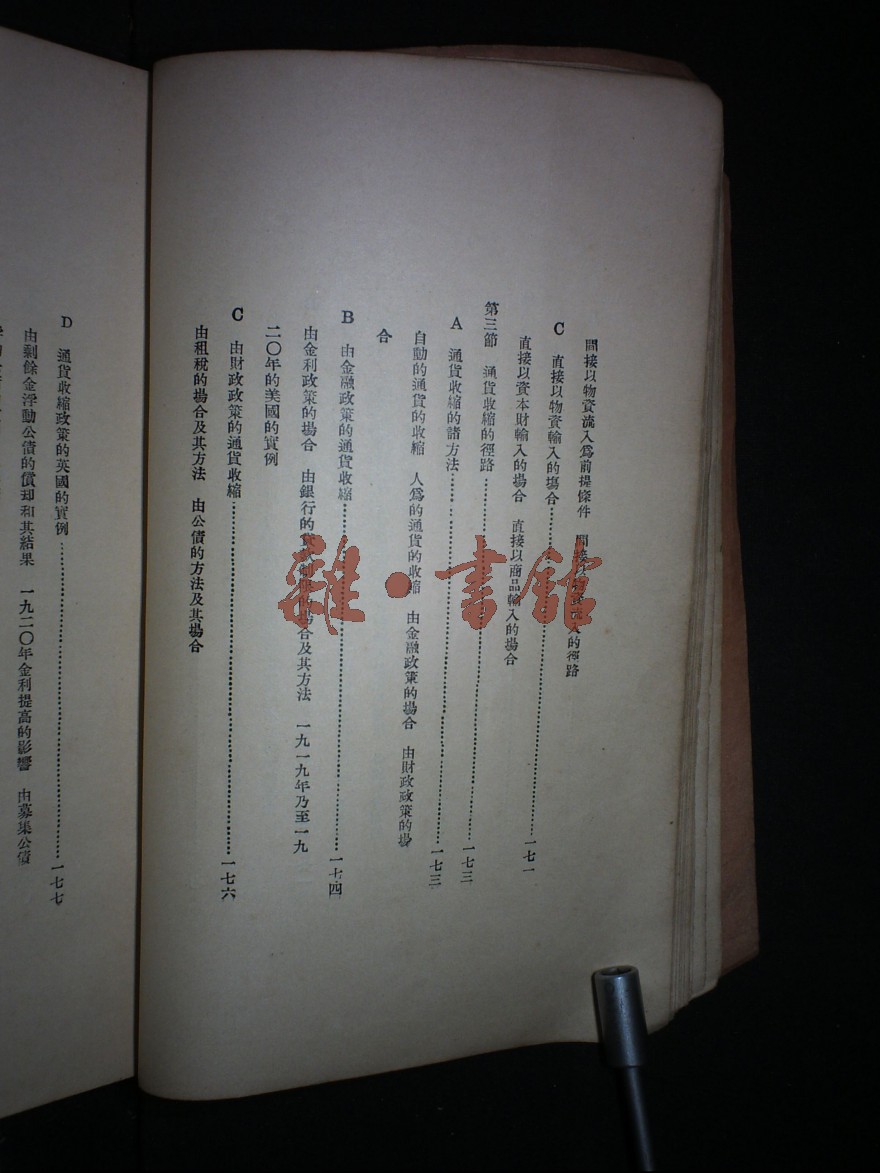 間接以物資流入爲前提條件　間接以物資流入的徑路
C　直接以物資輸入的場合…………一七一
直接以資本財輸入的場合　直接以商品輸入的場合
第三節　通貨收縮的徑路…………一七三
A　通貨收縮的諸方法…………一七三
自動的通貨的收縮　人爲的通貨的收縮　由金融政策的場合　由財政政策的場
合
B　由金融政策的通貨收縮…………一七四
由金利政策的場合　由銀行的 的場合及其方法　一九一九年乃至一九
二〇年的美國的實例
C　由財政政策的通貨收縮…………一七六
由租稅的場合及其方法　由公債的方法及其場合
D　通貨收縮政策的英國的實例…………一七七
由剩餘金浮動公債的償却和其結果　一九二〇年金利提高的影響　由募集公債
雜·書館